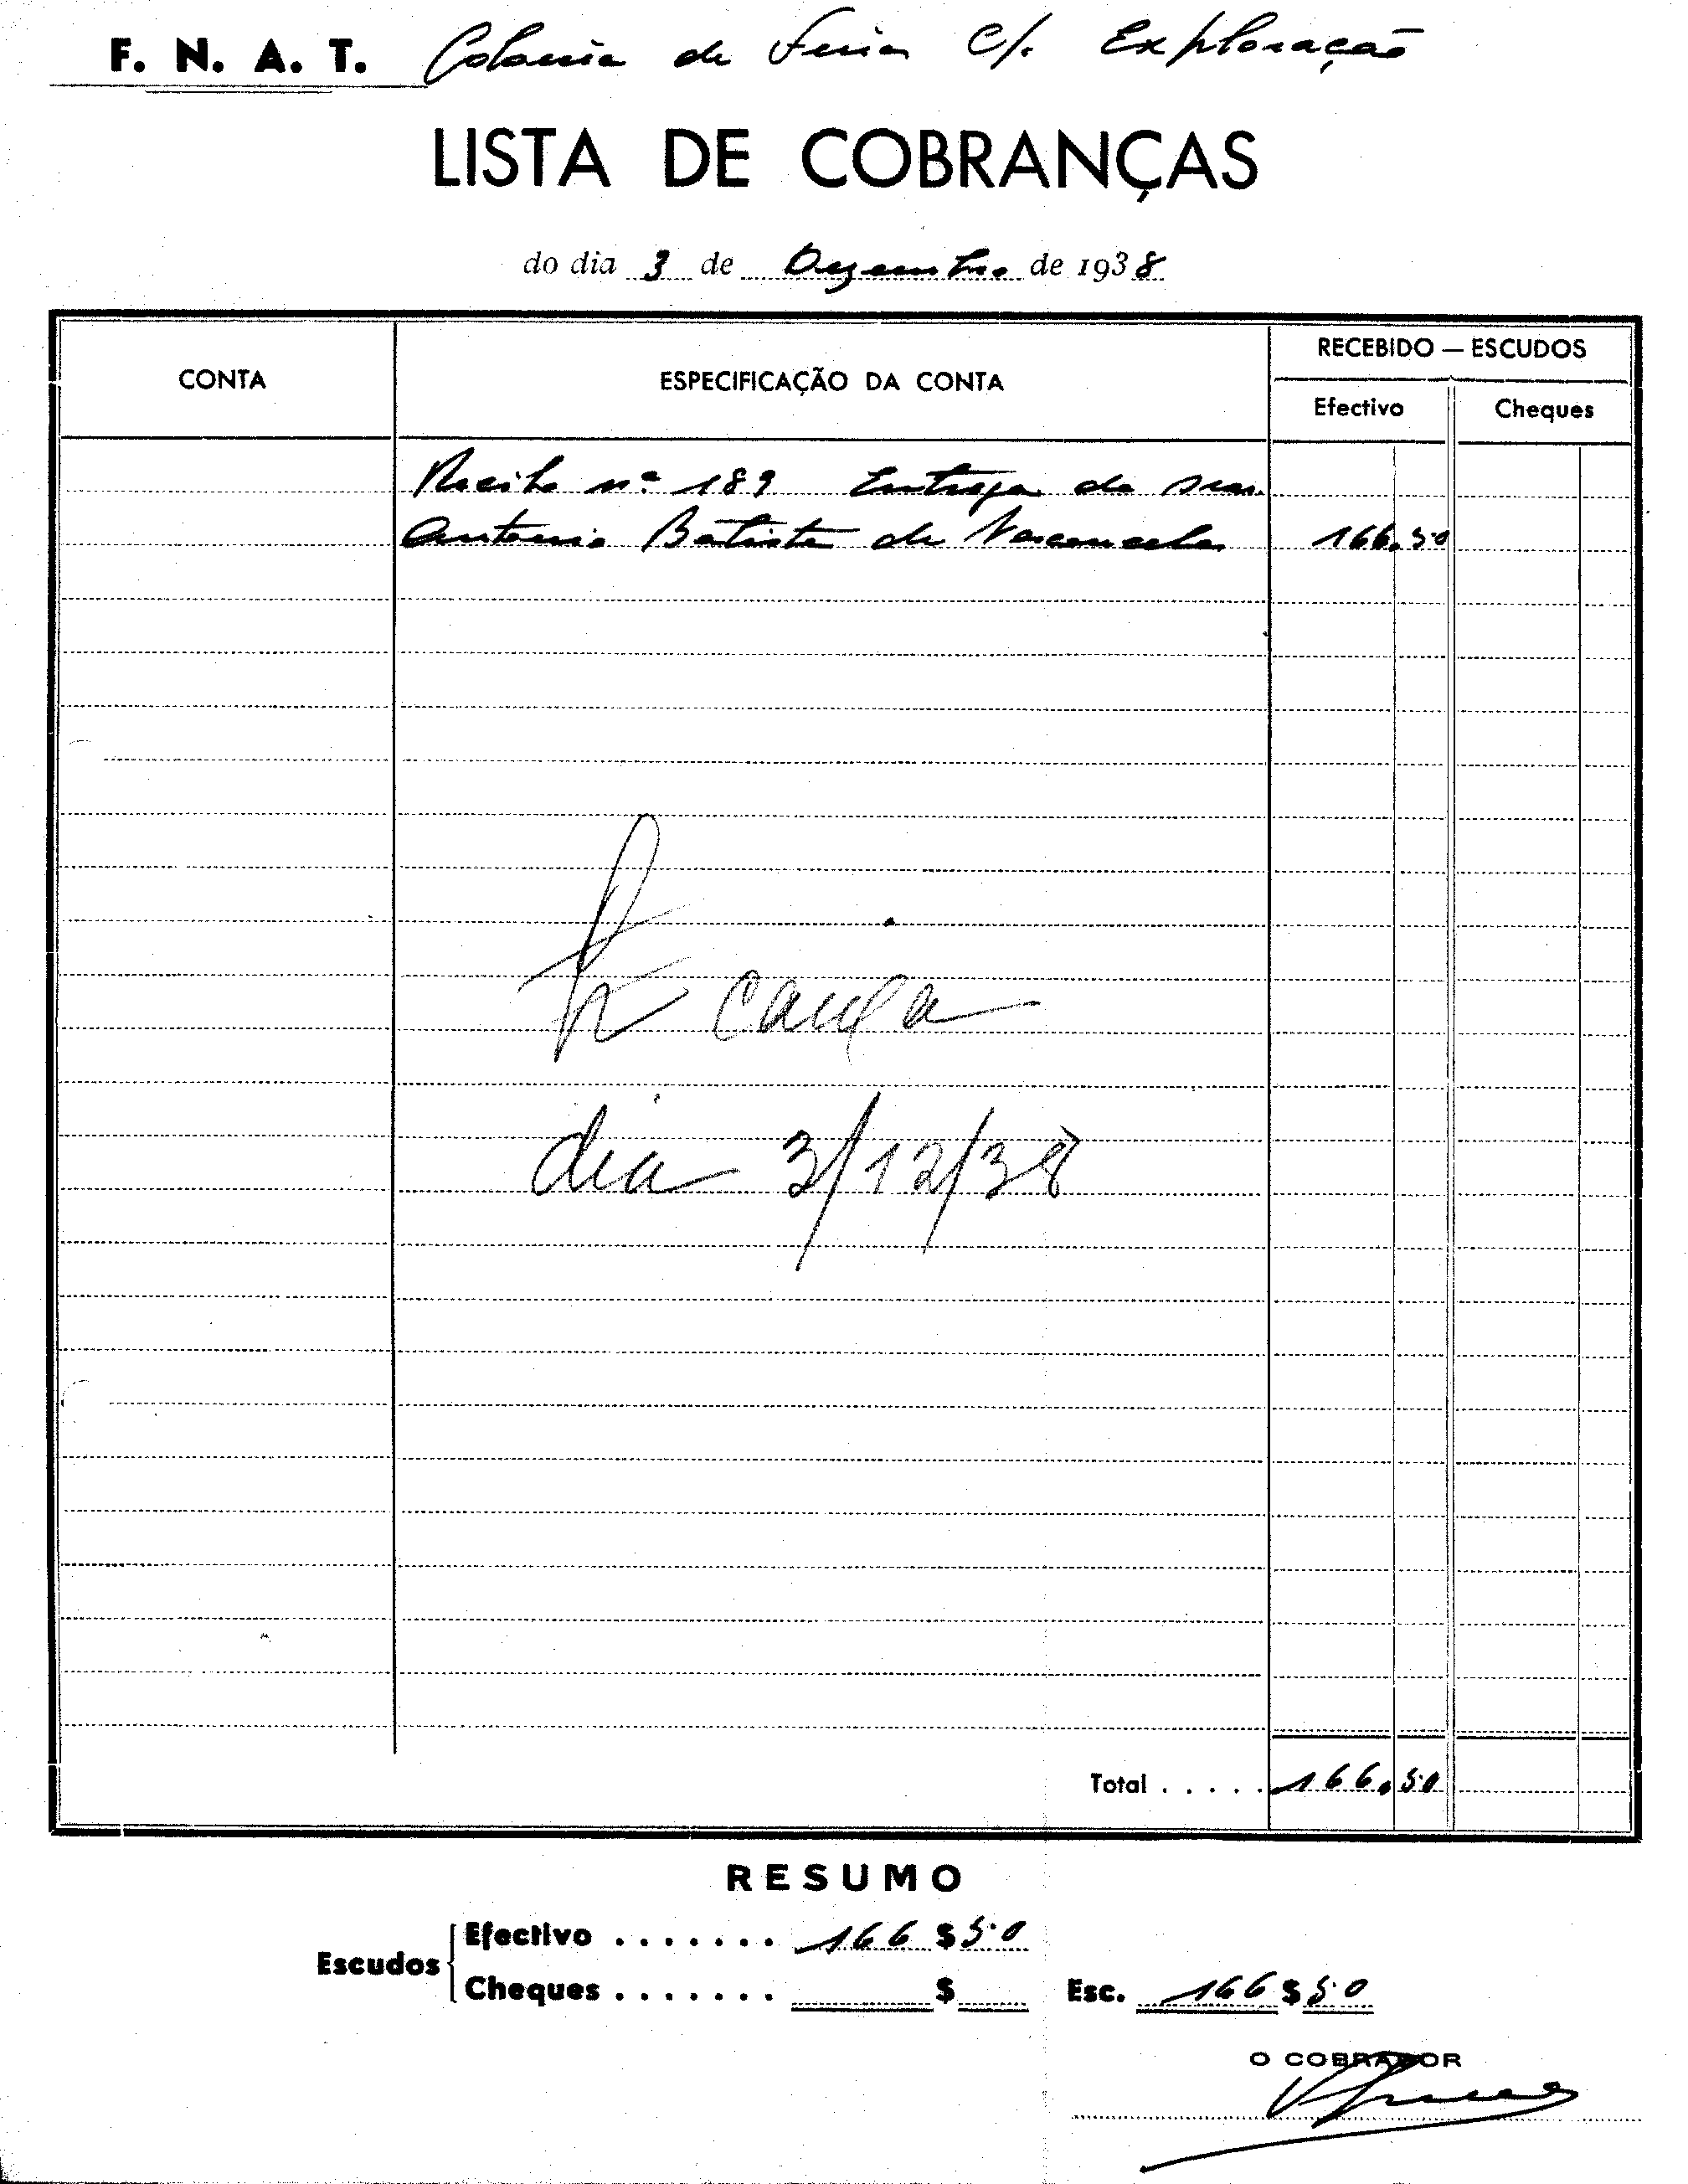 F. N. A. T. Colonia de Ferias C/. Exploração
LISTA DE COBRANÇAS
do dia 3 de Dezembro de 1938
CONTA
ESPECIFICAÇÃO DA CONTA
RECEBIDO — ESCUDOS
Efectivo
Cheques
Recibo nº 189 Entrega do snr.
Antonio Batista de Vasconcelos 166.50
caixa
dia 3/12/38
Total . . . . . 166.50
RESUMO
Escudos
Efectivo . . . . . . . 166 $ 50
Cheques . . . . . . . $
Esc. 166 $ 50
O COBRADOR